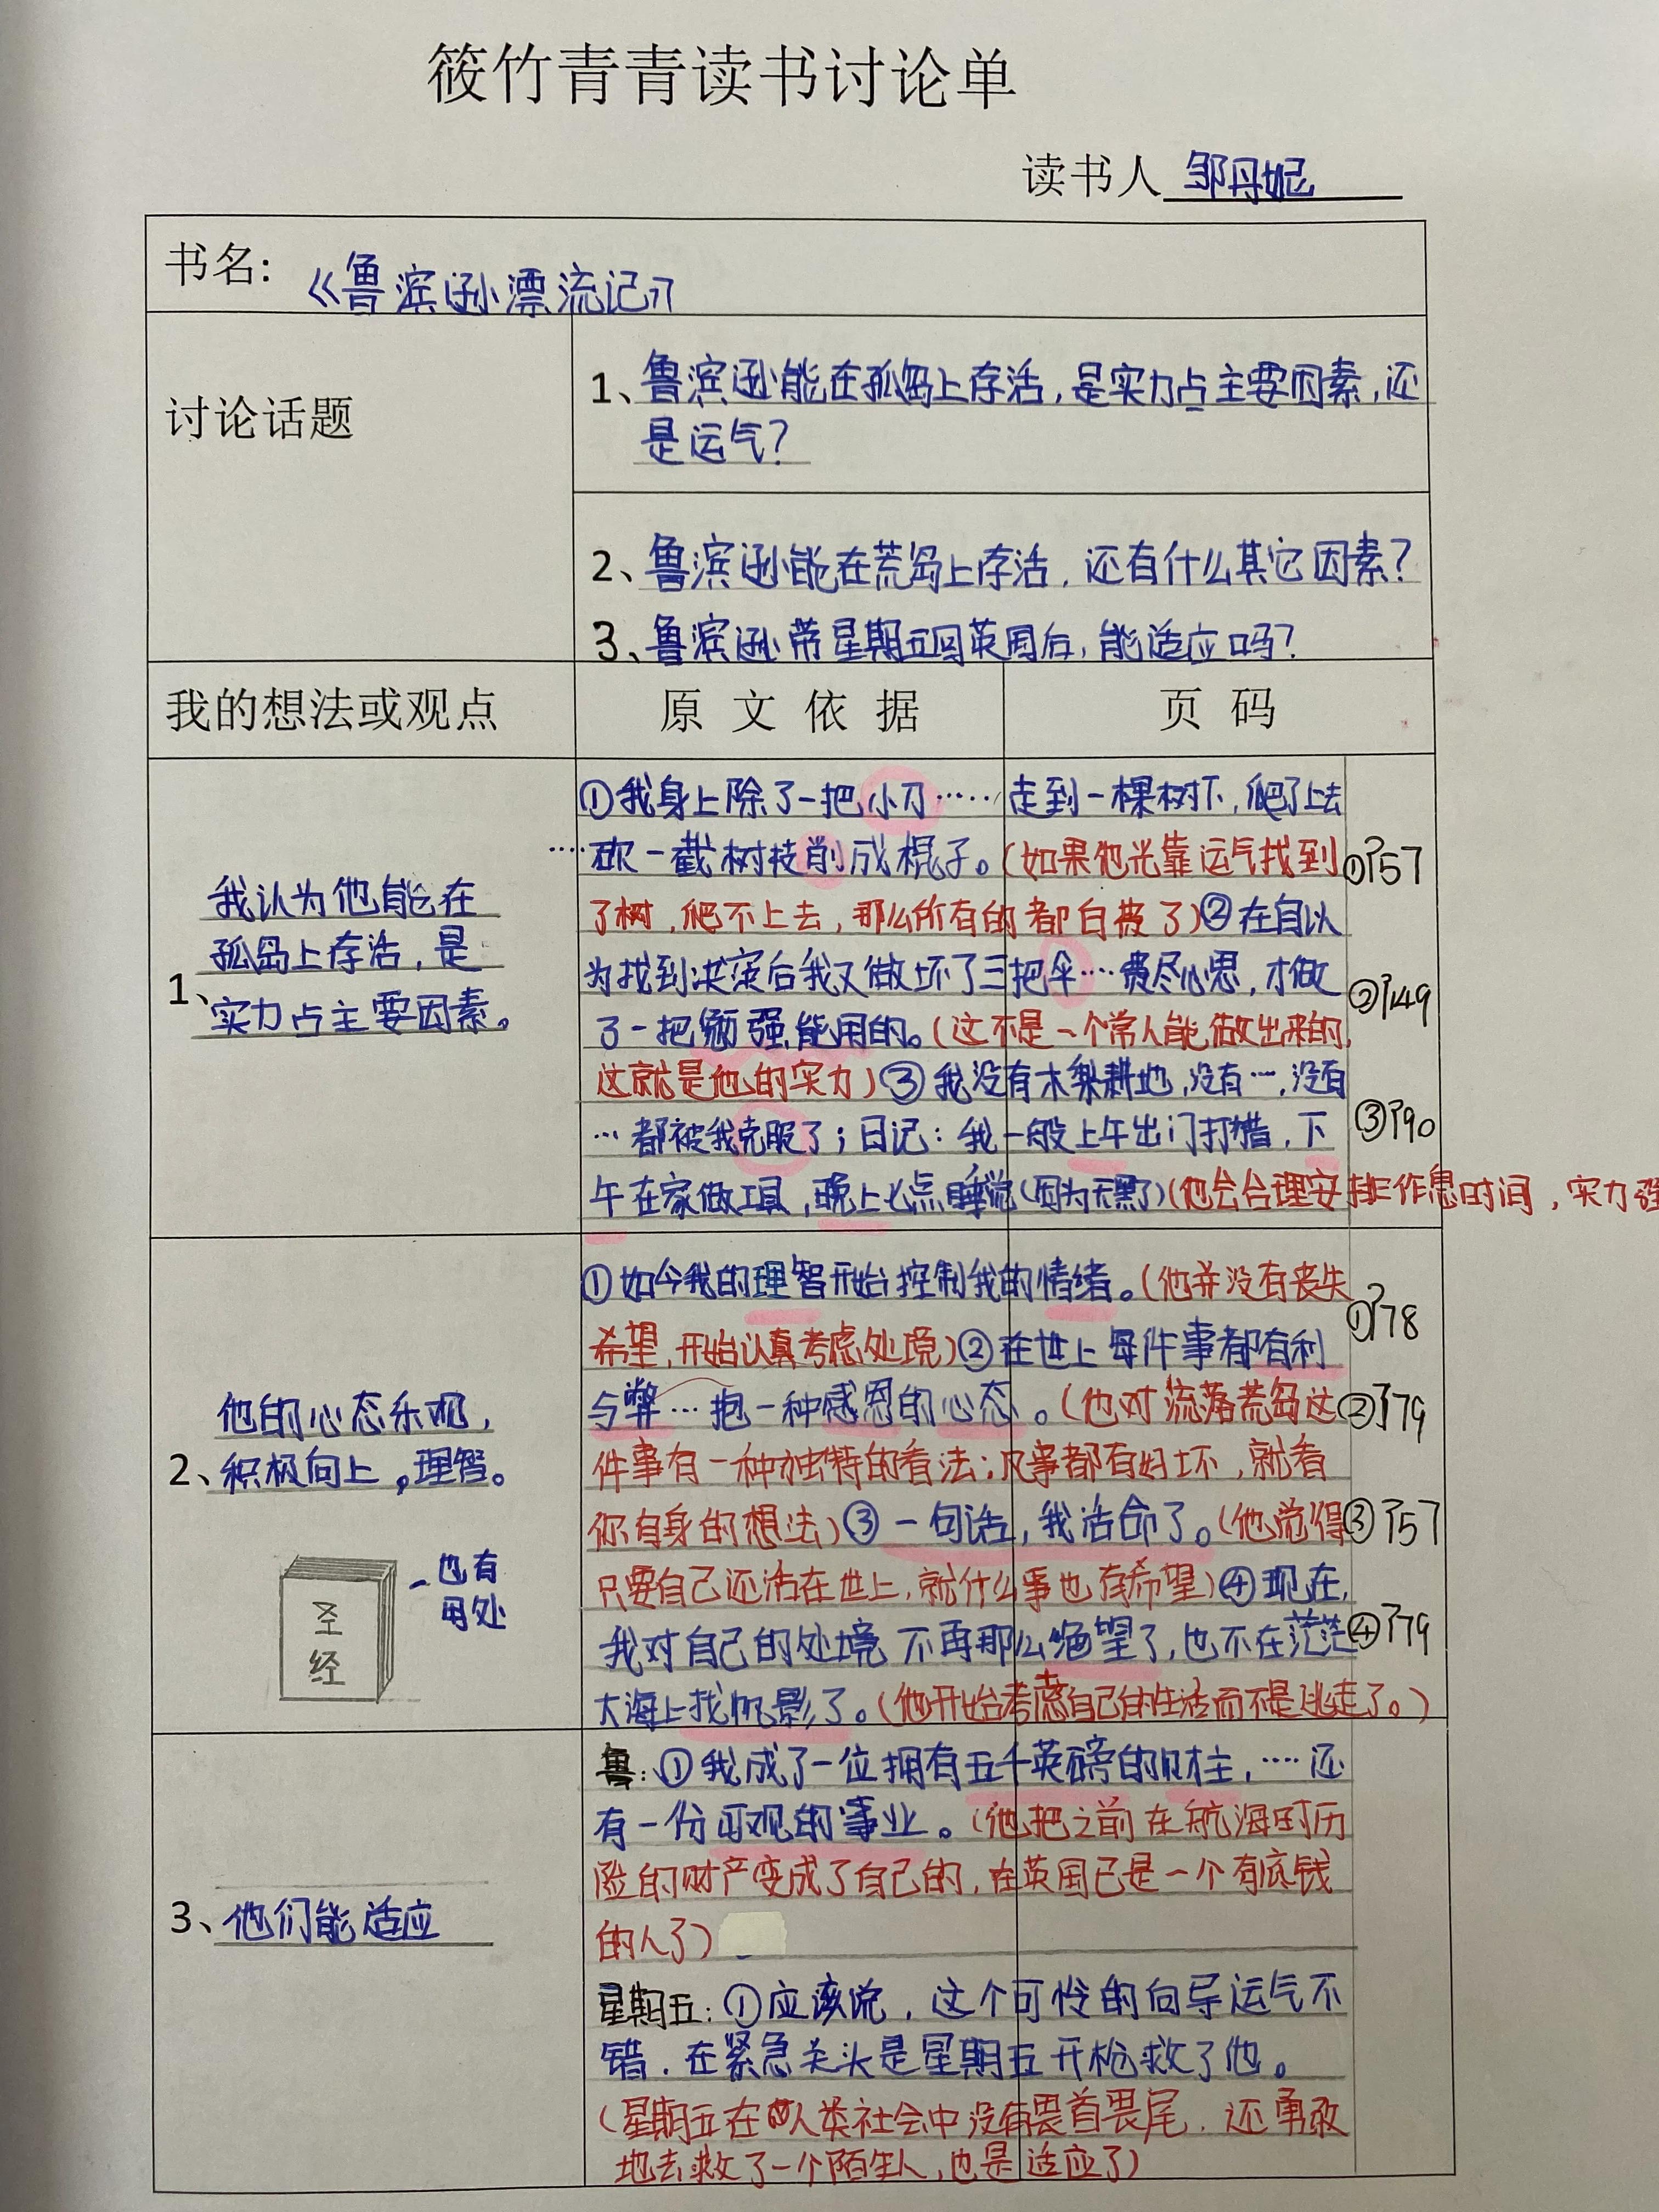 筱竹青青读书讨论单
读书人 邹丹妮
书名: 《鲁滨逊漂流记》
讨论话题
1、鲁滨逊能在孤岛上存活，是实力占主要因素，还
是运气？
2、鲁滨逊能在荒岛上存活，还有什么其它因素？
3、鲁滨逊带星期五回英国后，能适应吗？
我的想法或观点 原文依据 页码
我认为他能在
孤岛上存活，是
1、实力占主要因素。
①我身上除了一把小刀……走到一棵树下，爬了上去
……砍一截树枝削成棍子。（如果他光靠运气找到
了树，爬不上去，那么所有的都白披了）②在自以
为找到决窍后我又做坏了三把伞……费尽心思，才做
了一把勉强能用的。（这不是一个常人能做出来的，
这就是他的实力）③我没有木犁耕地，没有…，没有
…都被我克服了；日记：我一般上午出门打猎，下
午在家做工具，晚上七点睡觉（因为天黑了）（他会合理安排作息时间，实力强
①P57
②P149
③P90
他的心态乐观，
2、积极向上，理智。
圣
经
也有
用处
①如今我的理智开始控制我的情绪。（他并没有丧失
希望，开始认真考虑处境）②在世上每件事都有利
与弊…抱一种感恩的心态。（他对流落荒岛这
件事有一种独特的看法：凡事都有好坏，就看
你自身的想法）③一句话，我活命了。（他觉得
只要自己还活在世上，就什么事也有希望）④现在，
我对自己的处境不再那么绝望了，也不在茫茫
大海上找帆影了。（他开始考虑自己的生活而不是逃走了。）
①P78
②P79
③P57
④P79
3、他们能适应
鲁：①我成了一位拥有五千英磅的财主，……还
有一份可观的事业。（他把之前在航海时历
险的财产变成了自己的，在英国已是一个有底钱
的人了）
星期五：①应该说，这个可怜的向导运气不
错，在紧急关头是星期五开枪救了他。
（星期五在人类社会中没有畏首畏尾，还勇敢
地去救了一个陌生人，也是适应了）